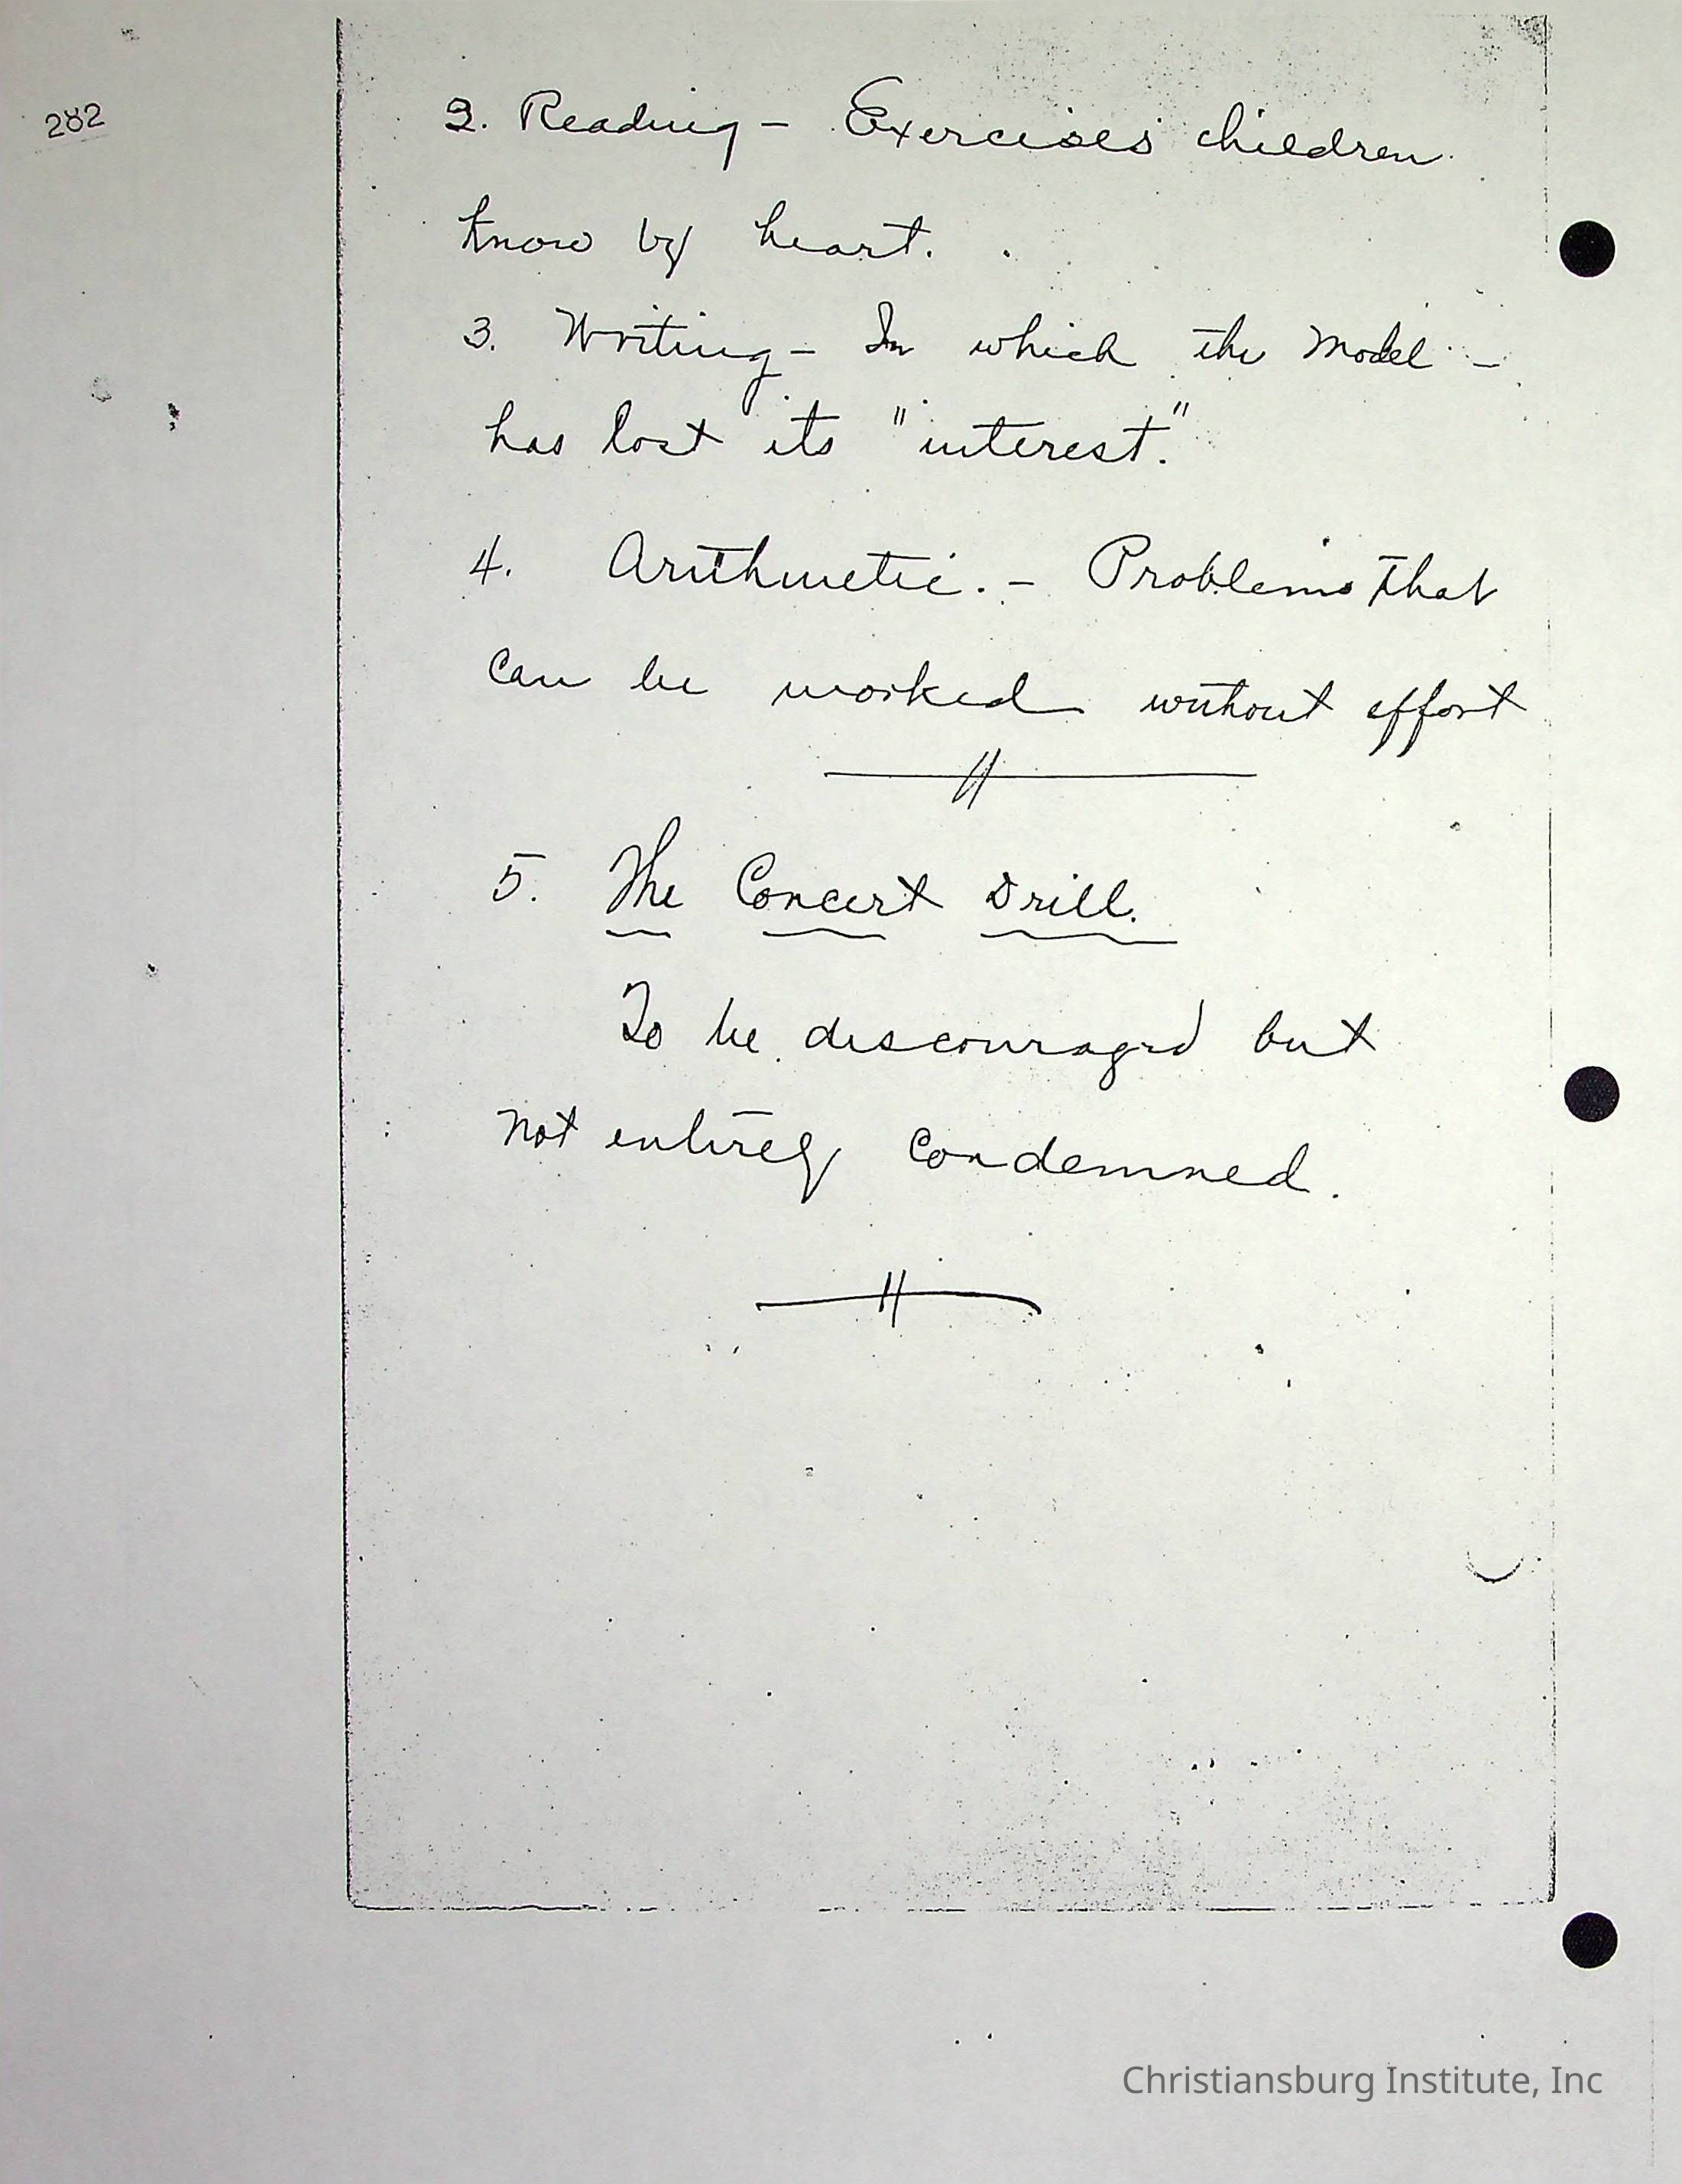 282
2. Reading - Exercises children
know by heart.
3. Writing - In which the model -
has lost its "interest."
4. Arithmetic. - Problems that
can be worked without effort
5. The Concert Drill.
To be discouraged but
not entirely condemned.
Christiansburg Institute, Inc